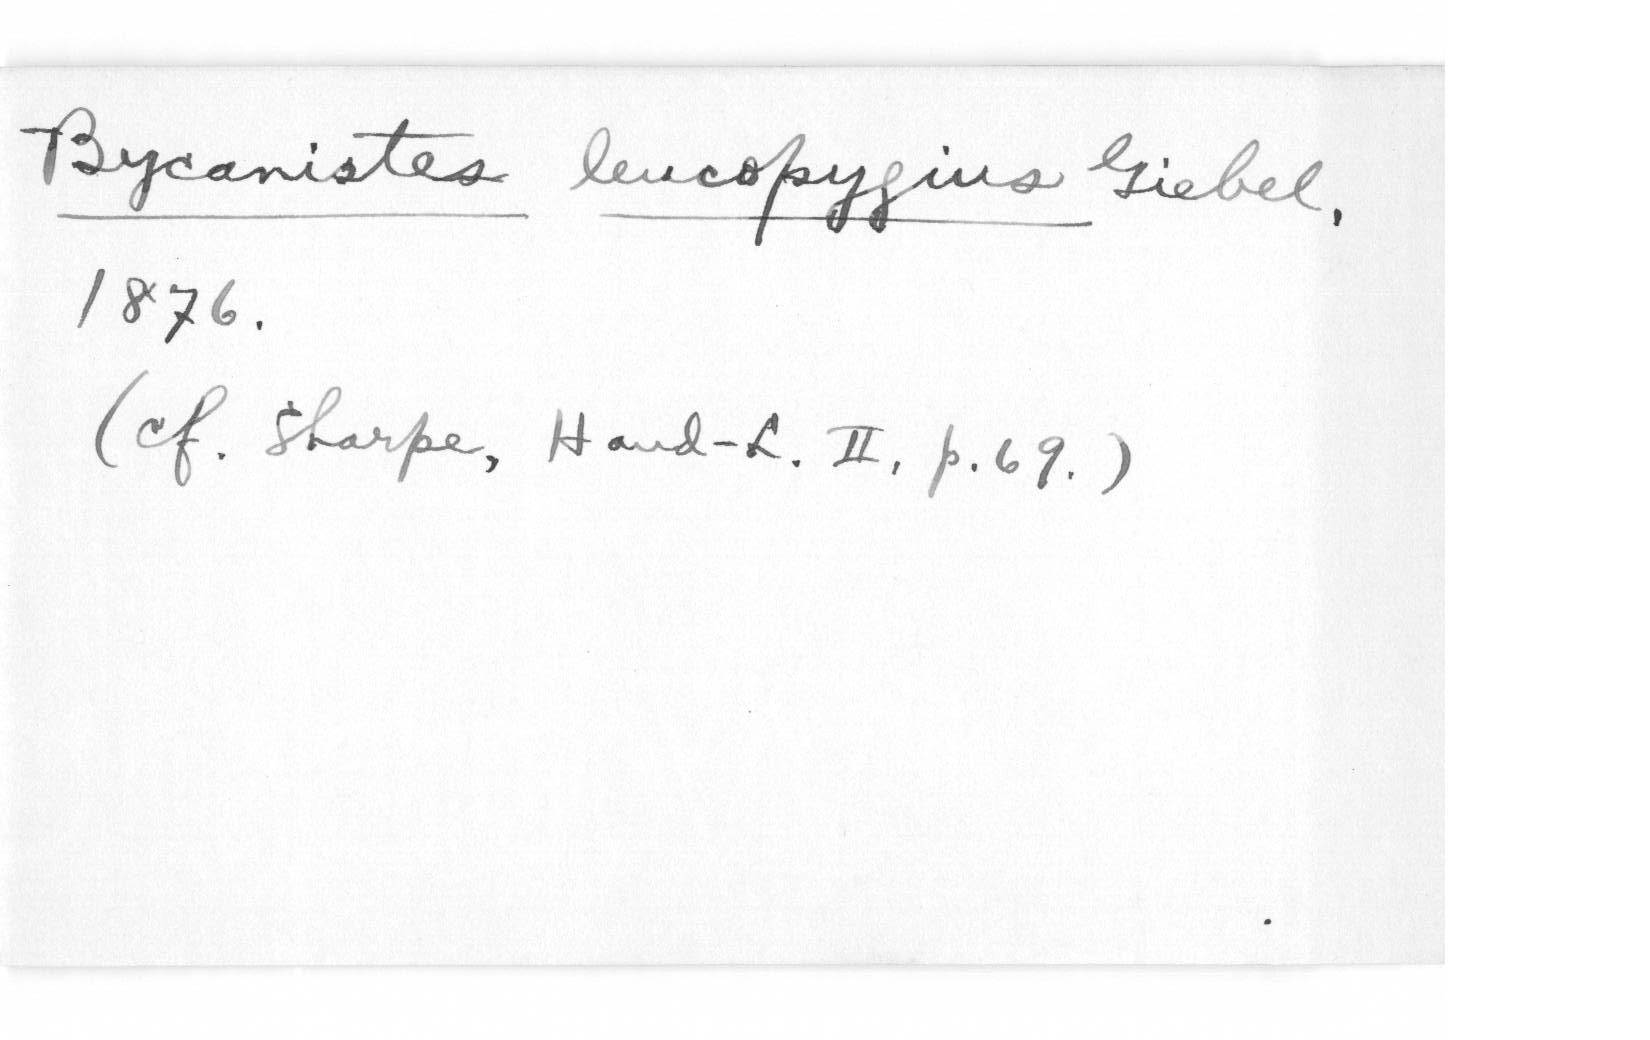 Bycanistes leucopygius Giebel,
1876.
(cf. Sharpe, Hand-L. II, p. 69.)